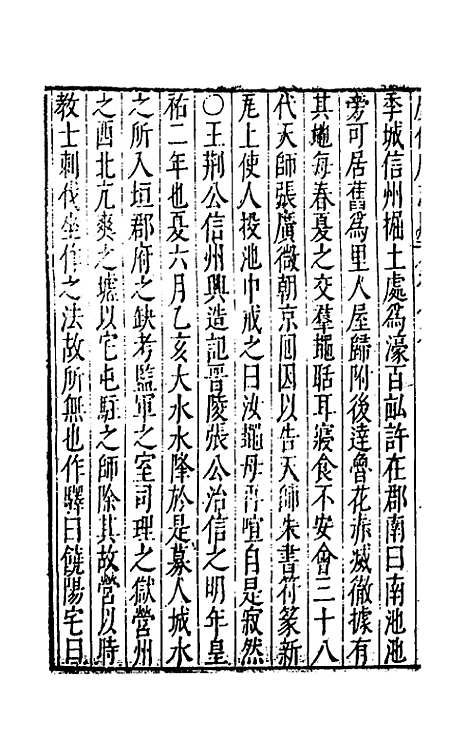 季城信州掘土處為濠百畝許在郡南曰南池池
旁可居舊為里人屋歸附後達魯花赤滅徹據有
其地每春夏之交羣黽聒耳寢食不安會三十八
代天師張廣微朝京囘因以告天師朱書符篆新
瓦上使人投池中戒之曰汝黽毋再喧自是寂然
○王荆公信州興造記晋陵張公治信之明年皇
祐二年也夏六月乙亥大水水降於是募人城水
之所入垣郡府之缺考監軍之室司理之獄營州
之酉北亢爽之墟以宅屯駐之師除其故營以時
教士刺伐坐作之法故所無也作驛曰饒陽宅曰